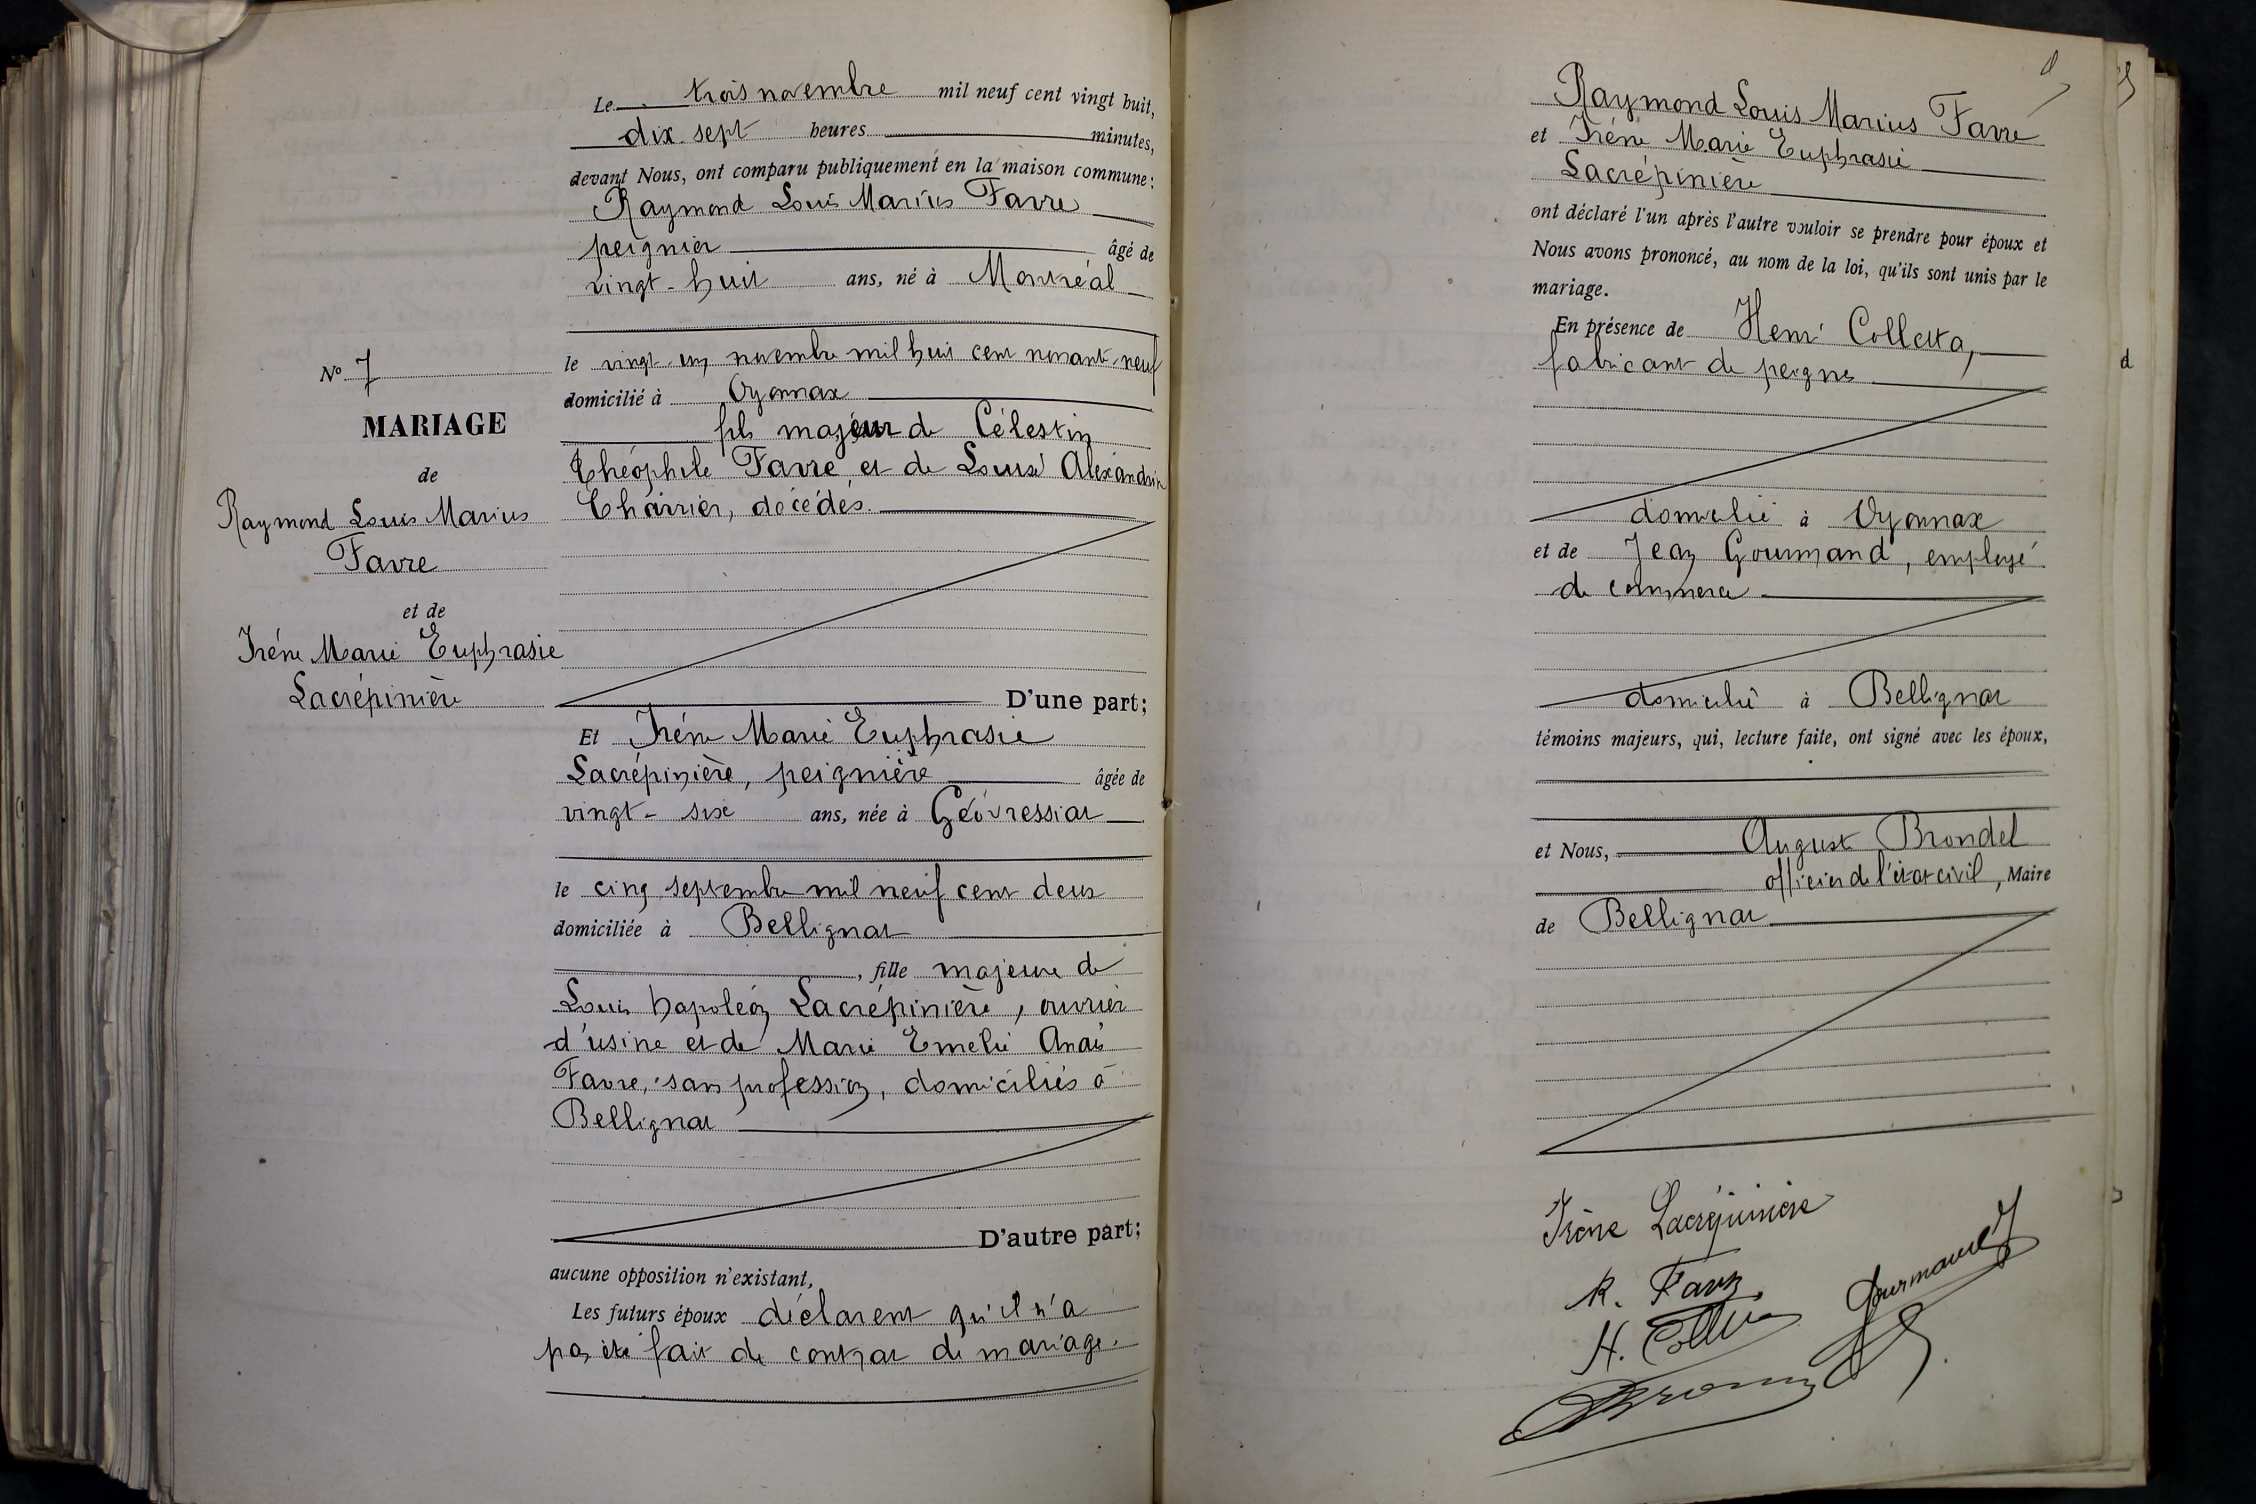 N° 7
MARIAGE
de
Raymond Louis Marius
Favre
et de
Irène Marie Euphrasie
Lacrépinière
Le trois novembre mil neuf cent vingt huit,
dix sept heures minutes,
devant Nous, ont comparu publiquement en la maison commune :
Raymond Louis Marius Favre
peignier âgé de
vingt-huit ans, né à Montréal
le vingt un novembre mil huit cent nonant-neuf
domicilié à Oyonnax
fils majeur de Célestin
Théophile Favre et de Louise Alexandrine
Charrier, décédés.
D'une part;
Et Irène Marie Euphrasie
Lacrépinière, peignière âgée de
vingt-six ans, née à Géovressiat
le cinq septembre mil neuf cent deux
domiciliée à Bellignat
, fille majeure de
Louis Napoléon Lacrépinière, ouvrier
d'usine et de Marie Emelie Anaïs
Favre, sans profession, domiciliés à
Bellignat
D'autre part;
aucune opposition n'existant,
Les futurs époux déclarent qu'il n'a
pas été fait de contrat de mariage.
Raymond Louis Marius Favre
et Irène Marie Euphrasie
Lacrépinière
ont déclaré l'un après l'autre vouloir se prendre pour époux et
Nous avons prononcé, au nom de la loi, qu'ils sont unis par le
mariage.
En présence de Henri Colletta,
fabricant de peignes
domicilié à Oyonnax
et de Jean Gourmand, employé
de commerce
domicilié à Bellignat
témoins majeurs, qui, lecture faite, ont signé avec les époux,
et Nous, Auguste Brondel
officier de l'état civil, Maire
de Bellignat
Irène Lacrépinière
R. Favre
Gourmand
H. Colletta